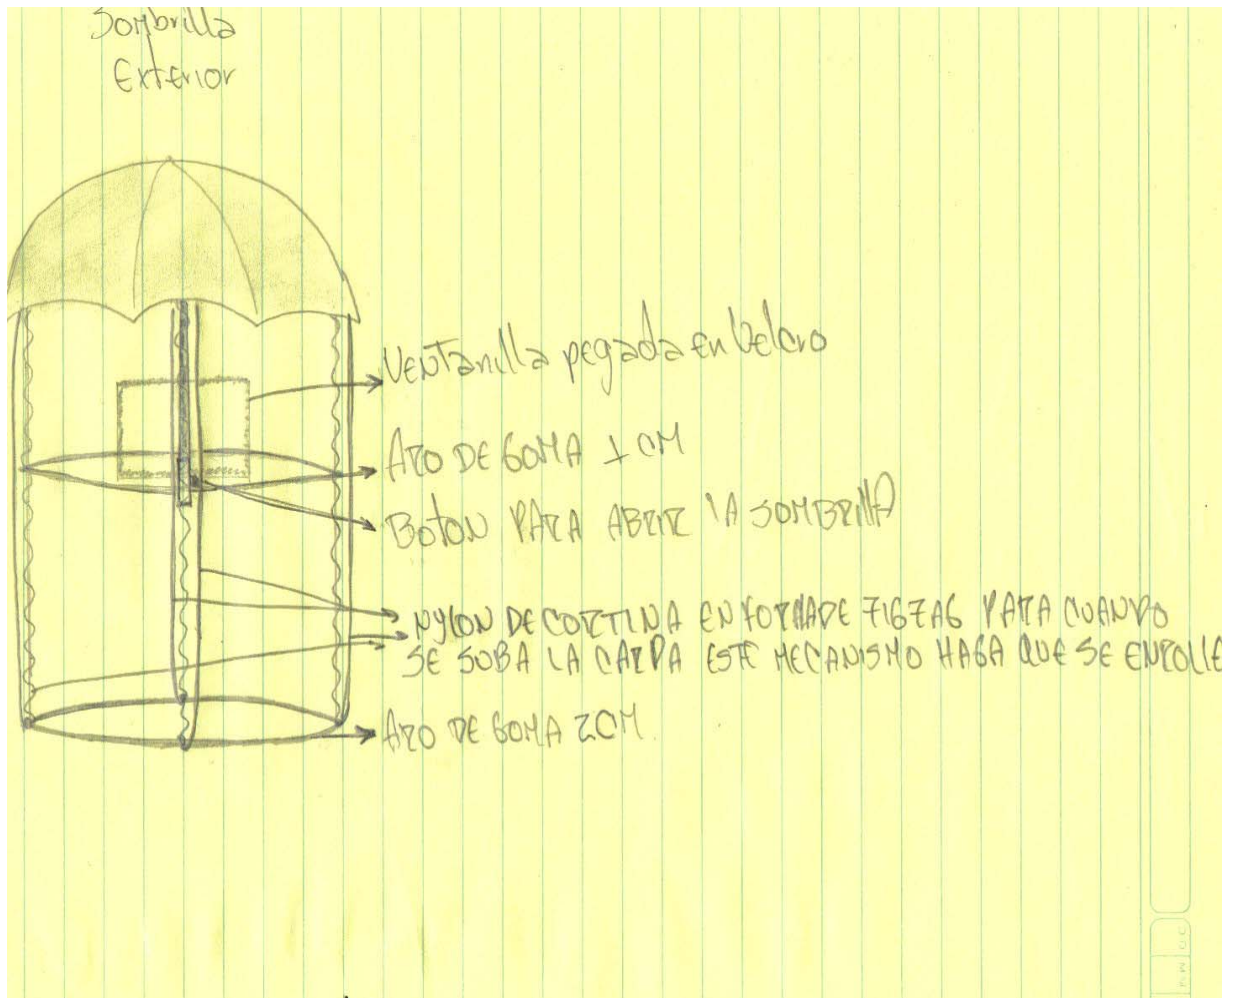 Sombrilla
Exterior
Ventanilla pegada en Velcro
ARO DE GOMA 1 CM
BOTON PARA ABRIR LA SOMBRILLA
NYLON DE CORTINA EN FORMA DE ZIGZAG PARA CUANDO
SE SUBA LA CARPA ESTE MECANISMO HAGA QUE SE ENROLLE
ARO DE GOMA 2CM